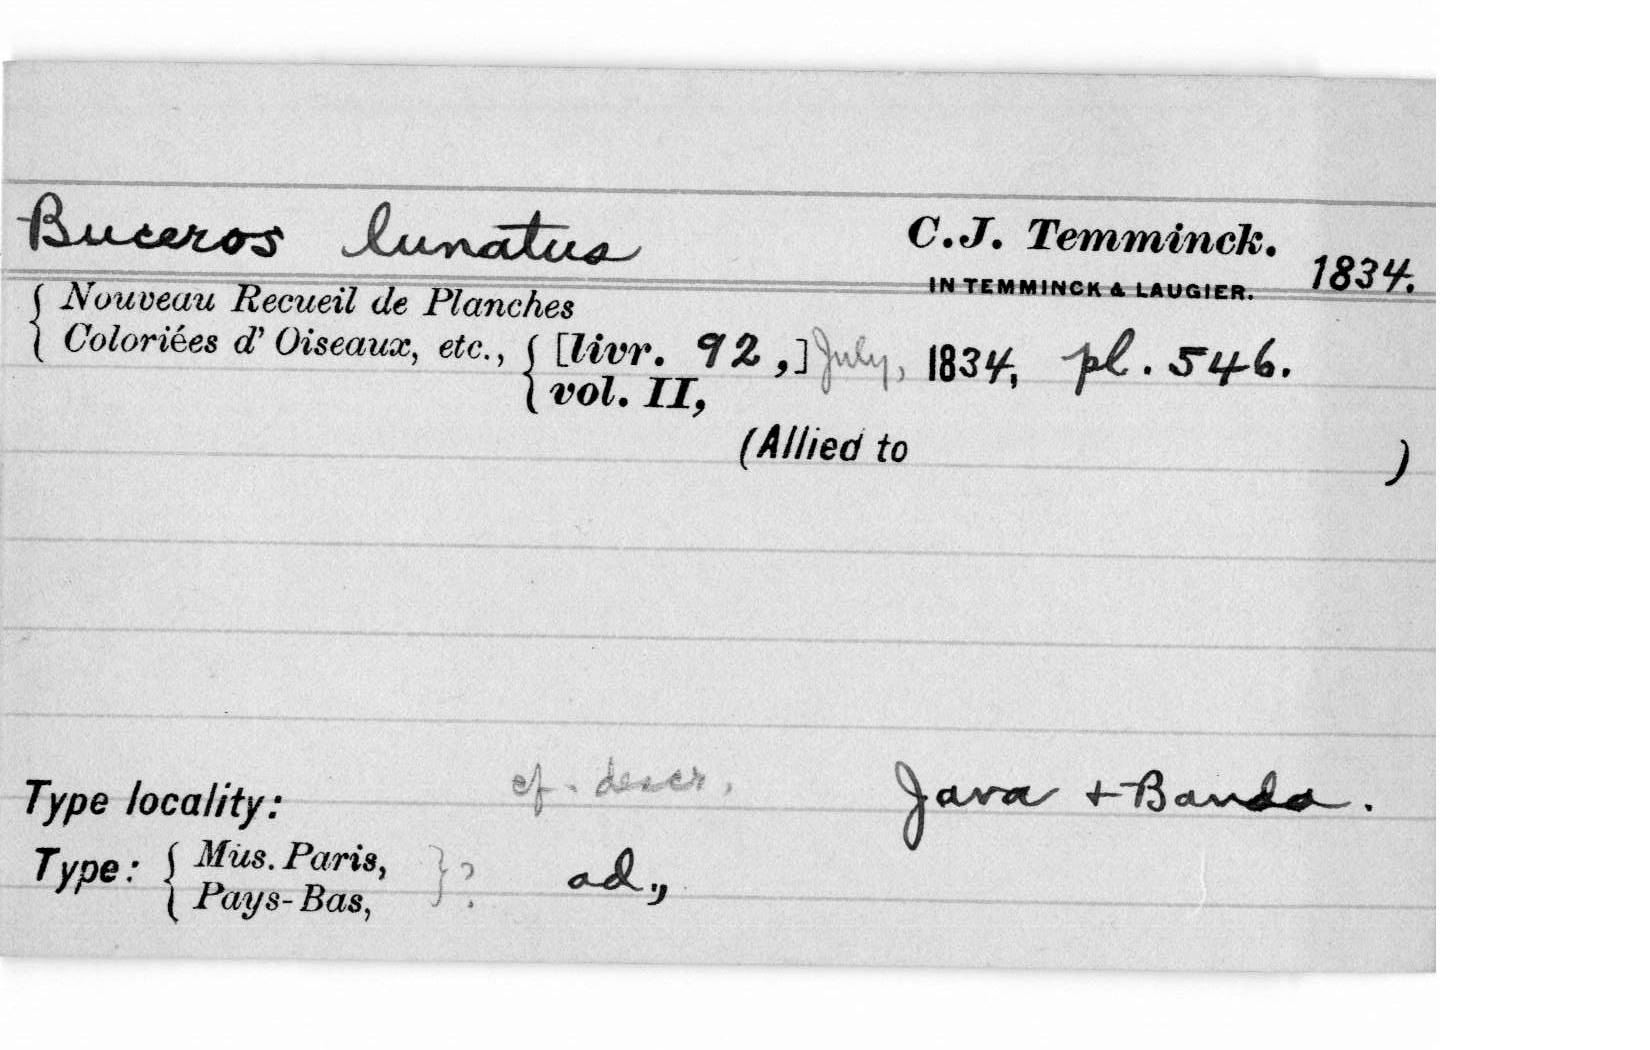 Buceros lunatus C.J. Temminck. 1834.
IN TEMMINCK & LAUGIER.
{ Nouveau Recueil de Planches
Coloriées d' Oiseaux, etc., { [livr. 92,] July, 1834, pl. 546.
vol. II,
(Allied to )
Type locality: cf. descr. Java + Banda.
Type: { Mus. Paris, }? ad.,
Pays-Bas,